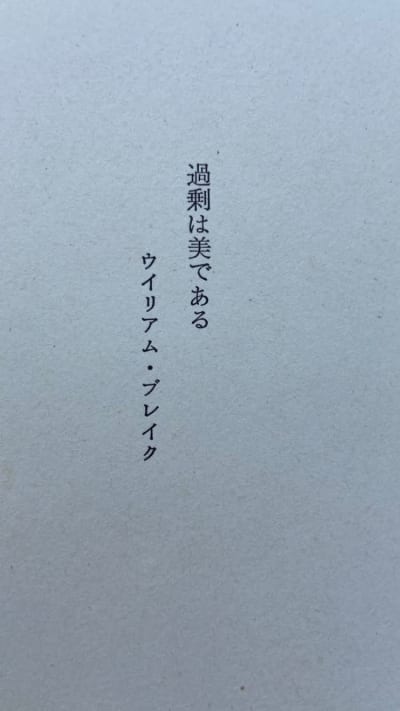 過剰は美である
ウイリアム・ブレイク